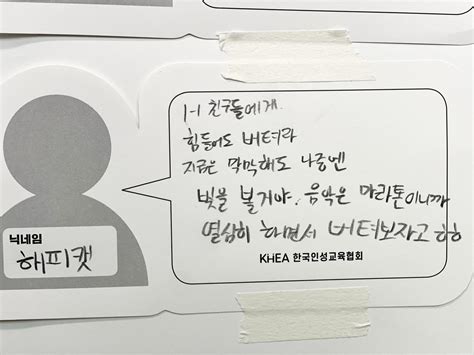 1-1 친구들에게.
힘들어도 버텨라
지금은 막막해도 나중엔
빛을 볼거야. 음악은 마라톤이니까
열심히 하면서 버텨보자고 ㅎㅎ
KHEA 한국인성교육협회
닉네임
해피캣